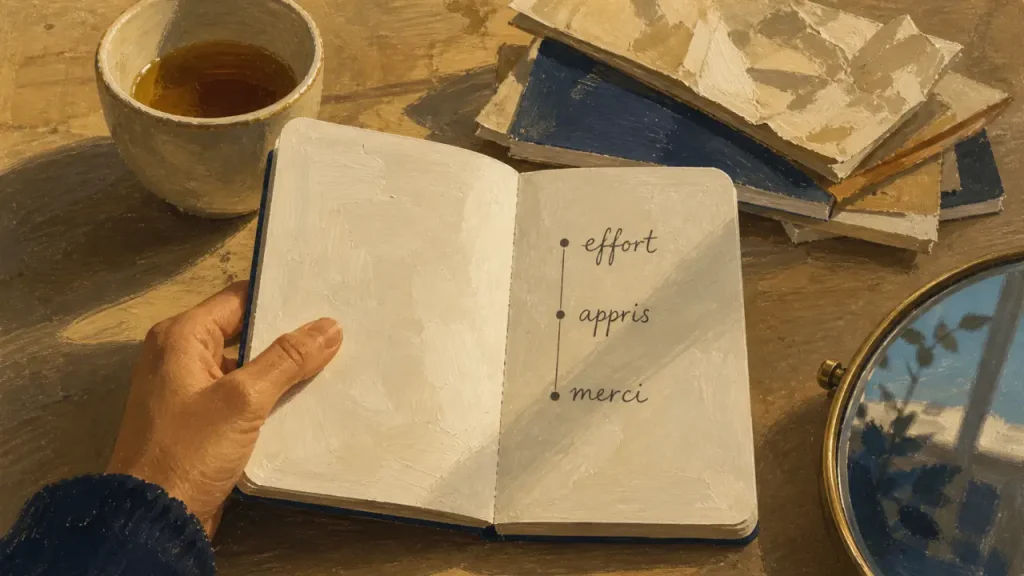 effort
appris
merci